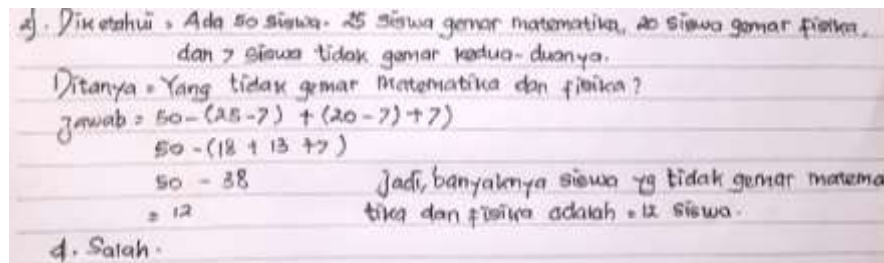 2). Diketahui : Ada 50 siswa. 25 siswa gemar matematika, 20 siswa gemar fisika,
dan 7 siswa tidak gemar kedua-duanya.
Ditanya : Yang tidak gemar matematika dan fisika?
Jawab : 50-(25-7) + (20-7)+7)
50 - (18 + 13 +7)
50 - 38
Jadi, banyaknya siswa yg tidak gemar matema
= 12
tika dan fisika adalah = 12 siswa.
d. Salah.